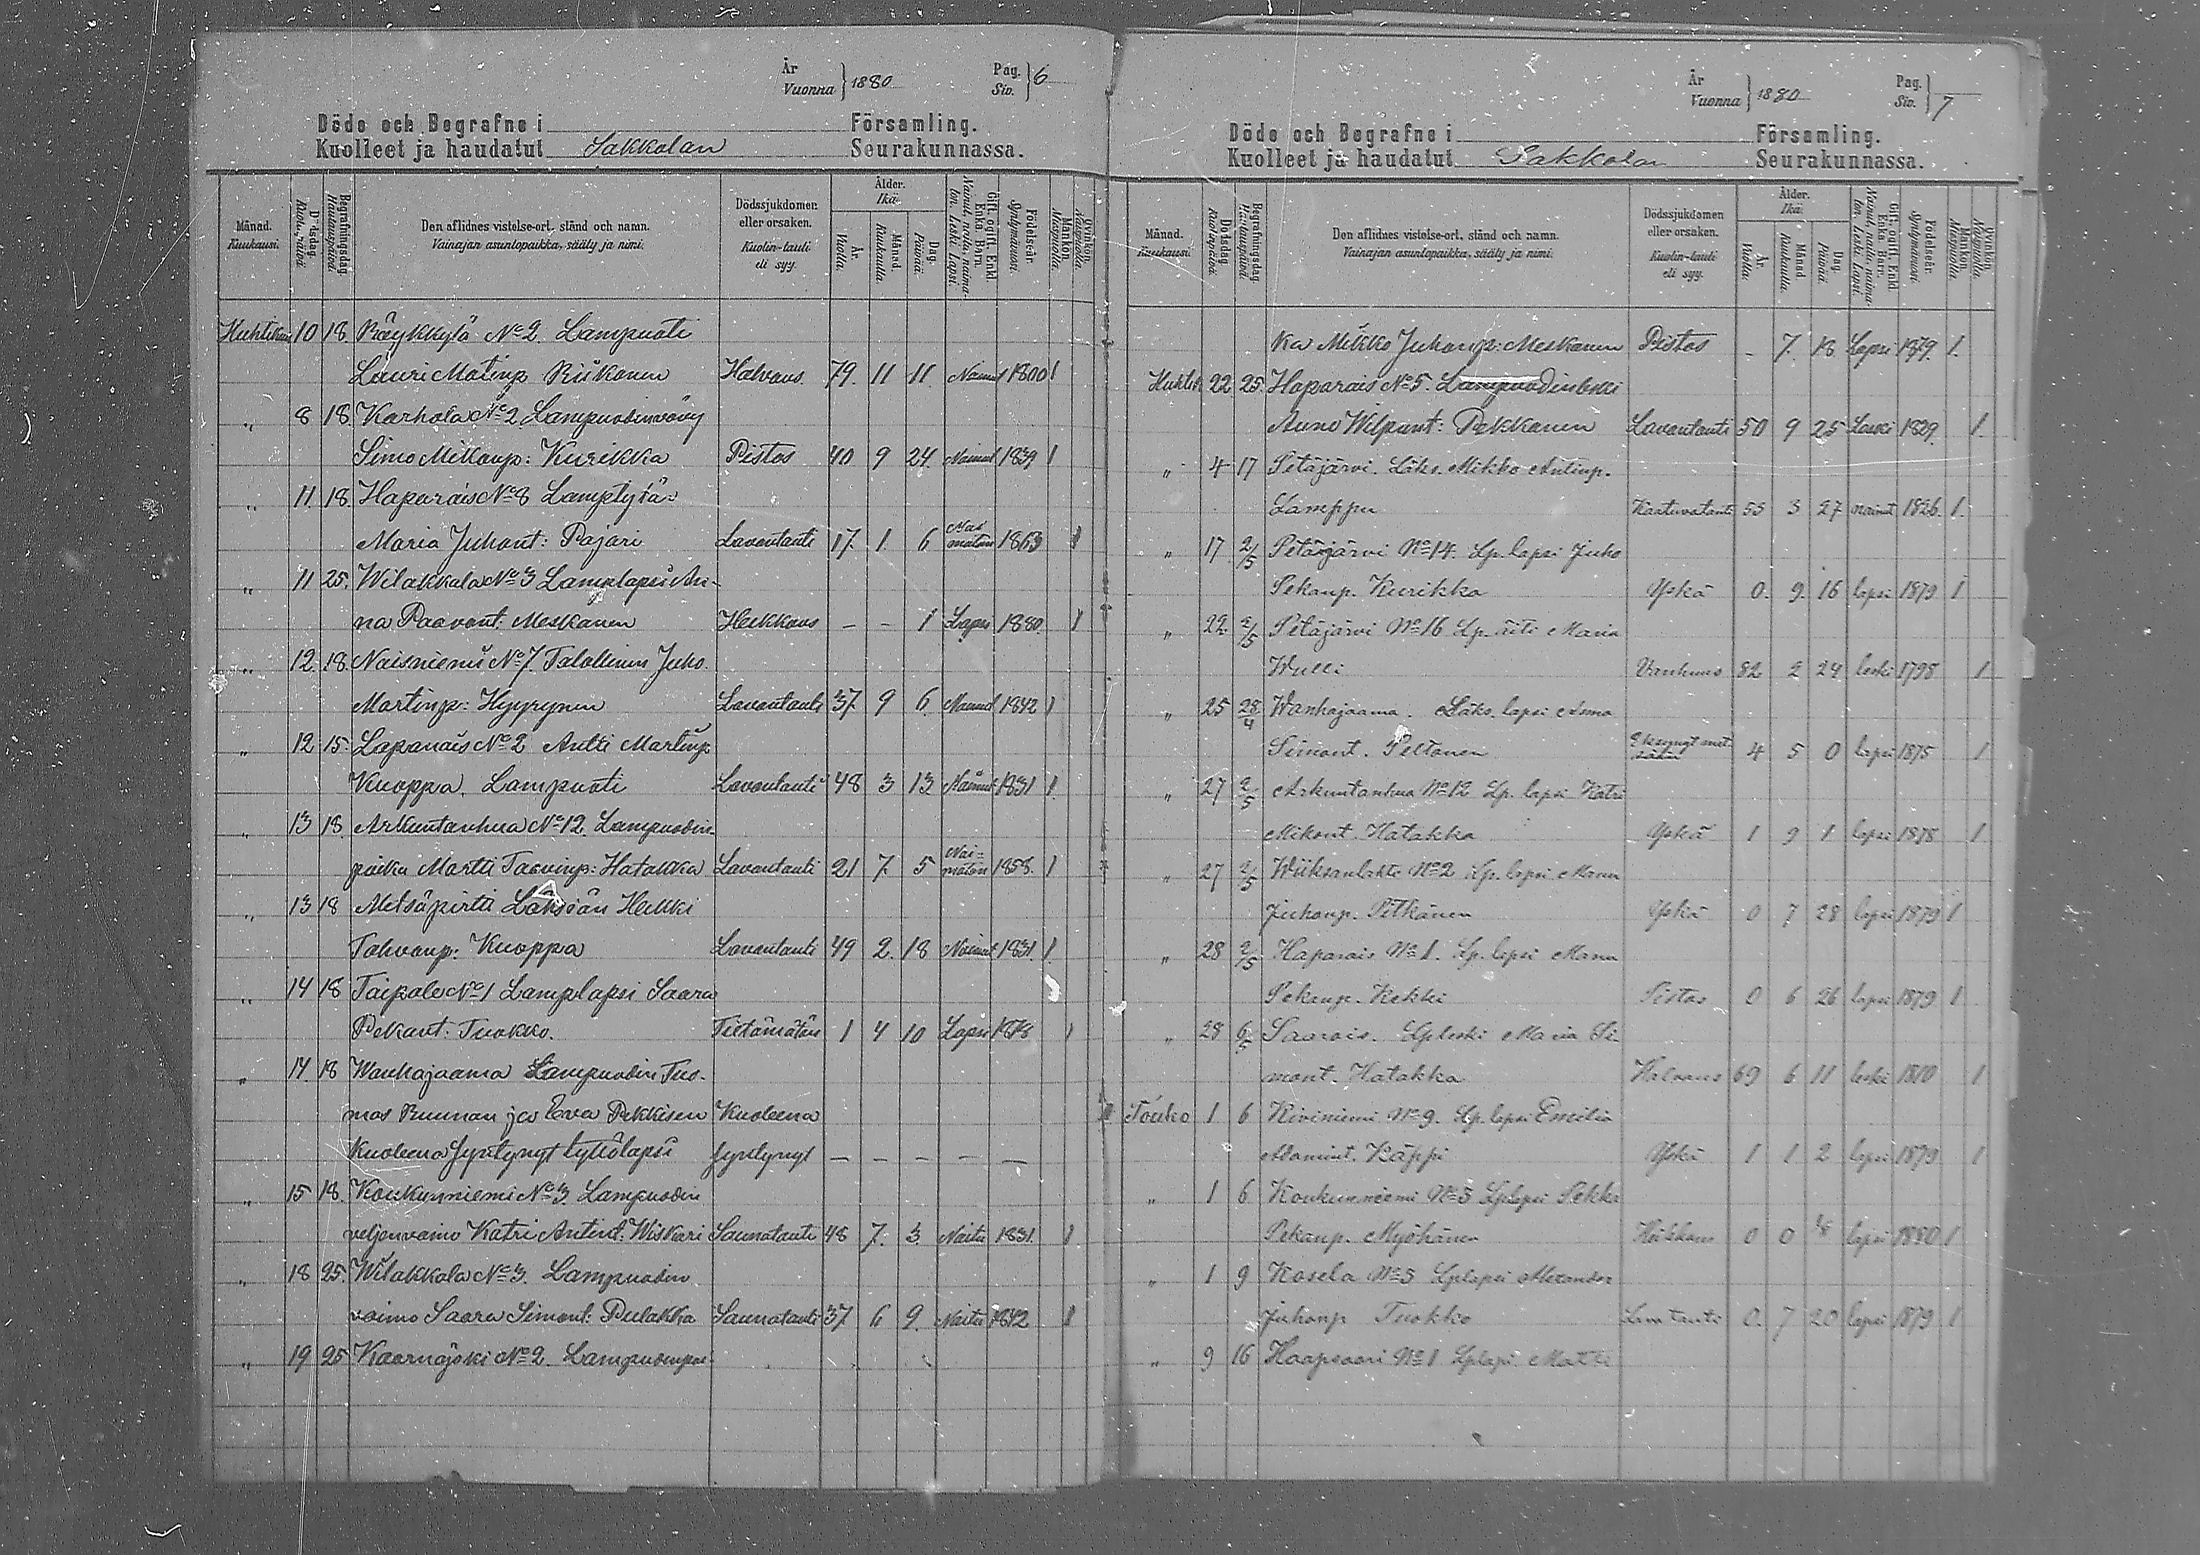 År
Vuonna } 1880
Pag.
Siv. } 6
Döde och Begrafne i Församling.
Kuolleet ja haudatut Sakkolan Seurakunnassa.
Månad. Kuukausi.
Dödsdag. Kuolinpäivä.
Begrafningsdag. Hautauspäivä.
Den aflidnes vistelse-ort, stånd och namn.
Vainajan asuntopaikka, sääty ja nimi.
Dödssjukdomen eller orsaken.
Kuolin-tauti eli syy.
Ålder. Ikä.
År. Vuotta.
Månad. Kuukautta.
Dag. Päivää.
Gift, ogift, Enkl. Enka, Barn.
Födelseår. Syntymävuosi.
Mankön. Miespuolia.
Qvinkön. Naispuolia.
Huhtikuu 10 18 Räykkylä No 2. Lampuoti
Lauri Matinp. Riikonen Halvaus 79. 11 11. Nainut 1800 1
" 8 18 Karhola No 2. Lampuodinvävy
Simo Mikonp: Kurikka Pistos 40 9 24. Nainut 1839 1
" 11. 18. Haparais No 8 Lamptytär
Maria Juhont: Pajari Lavantauti 17. 1. 6 Naimatoin 1863 1
" 11 25. Wilakkala No 3 Lamplapsi An-
na Paavont. Meskanen Heikkous – – 1 Lapsi 1880. 1
" 12 18. Naisniemi No 7. Talollinen Juho
Martinp: Hyyrynen Lavantauti 37. 9 6. Nainut 1842 1
" 12 15. Lapanais No 2 Antti Martinp:
Kuoppa. Lampuoti Lavantauti 48 3 13 Nainut 1831 1.
" 13 18. Arkuntanhua No 12. Lampuodin
poika Martti Taavinp: Hatakka Lavantauti 21 7. 5 Naimatoin 1858. 1
" 13 18 Metsäpirtti Läksiän Heikki
Tahvonp: Kuoppa Lavantauti 49 2. 18 Nainut 1831. 1.
" 14 18 Taipale No 1 Lamplapsi Saara
Pekant: Tuokko. Tietämätön 1 4 10 Lapsi 1878 1
" 14. 18 Wanhajaama Lampuodin Tuo-
mas Ruunan ja Eeva Pekkisen Kuoleena
Kuoleena syntynyt tyttölapsi syntynyt – – – – –
" 15 18. Koukunniemi No 3. Lampuodin
veljenvaimo Katri Antint. Wiskari Saunatauti 48 7. 3. Naitu 1831. 1.
" 18 25. Wilakkala No 3. Lampuodin
vaimo Saara Simont: Pulakka Saunatauti 37 6 9. Naitu 1842 1
" 19 25 Kaarnajoki No 2. Lampuodinpoi-
År
Vuonna } 1880
Pag.
Siv. } 7
Döde och Begrafne i Församling.
Kuolleet ja haudatut Sakkolan Seurakunnassa.
Månad. Kuukausi.
Dödsdag. Kuolinpäivä.
Begrafningsdag. Hautauspäivä.
Den aflidnes vistelse-ort, stånd och namn.
Vainajan asuntopaikka, sääty ja nimi.
Dödssjukdomen eller orsaken.
Kuolin-tauti eli syy.
Ålder. Ikä.
År. Vuotta.
Månad. Kuukautta.
Dag. Päivää.
Gift, ogift, Enkl. Enka, Barn.
Födelseår. Syntymävuosi.
Mankön. Miespuolia.
Qvinkön. Naispuolia.
ka Mikko Juhonp: Meskanen Pistos – 7. 18 Lapsi 1879. 1.
Huhtik 22 25 Haparais No 5. Lampuodinleski
Anne Wilpunt: Pekkanen Lavantauti 50 9 25 Leski 1829. 1.
" 4 17 Petäjärvi. Läks. Mikko Antinp.
Lamppu 53 3 27 nainut 1826. 1.
" 17 2/5 Petäjärvi No 14. Lp. lapsi Juho
Pekanp. Kurikka Yskä 0. 9. 16 lapsi 1879 1
" 22 2/5 Petäjärvi No 16 Lp. äiti Maria
Wulli Vanhuus 82 2 24 leski 1798 1
" 25 28/4 Wanhajaama. Läks. lapsi Anna
Simont. Peltonen 4 5 0 lapsi 1875 1
" 27 2/5 Arkuntanhua No 12 Lp. lapsi Katri
Mikont. Hatakka Yskä 1 9 1 lapsi 1878 1
" 27 2/5 Wiiksanlahti No 2 Lp. lapsi
Juhonp. Pitkänen Yskä 0 7 28 lapsi 1879 1
" 28 2/5 Haparais No 1. Lp. lapsi
Pekanp. Kekki Pistos 0 6 26 lapsi 1879 1
" 28 6/5 Saarois. Lpleski Maria Si-
mont. Hatakka Halvaus 69 6 11 leski 1810 1
Touko 1 6 Kiviniemi No 9. Lp. lapsi Emilia
Adamint. Käppi Yskä 1 1 2 lapsi 1879 1
" 1 6 Koukunniemi No 3 Lplapsi Pekka
Pekanp. Myöhänen Heikkous 0 0 lapsi 1880 1
" 1 9 Kasela No 5 Lplapsi Alexander
Juhonp Tuokko 0. 7 20 lapsi 1879 1
" 9 16 Haapsaari No 1 Lplapsi Matti